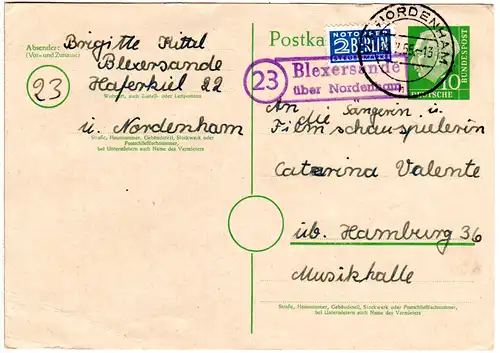 Absender:
(Vor- und Zuname)
Brigitte Kittel
Blexersande
23
Haferkiel 22
Wohnort, auch Zustell- oder Leitpostamt
ü. Nordenham
Straße, Hausnummer, Gebäudeteil, Stockwerk oder
Postschließfachnummer,
bei Untermietern auch Name des Vermieters
Postka
NOTOPFER
2 BERLIN
STEUERMARKE
NORDENHAM
-13
10
DEUTSCHE
BUNDESPOST
23
Blexersande
über Nordenham
An die Sängerin u.
Filmschauspielerin
Catarina Valente
üb. Hamburg 36
Musikhalle
Straße, Hausnummer, Gebäudeteil, Stockwerk oder Postschließfachnummer,
bei Untermietern auch Name des Vermieters